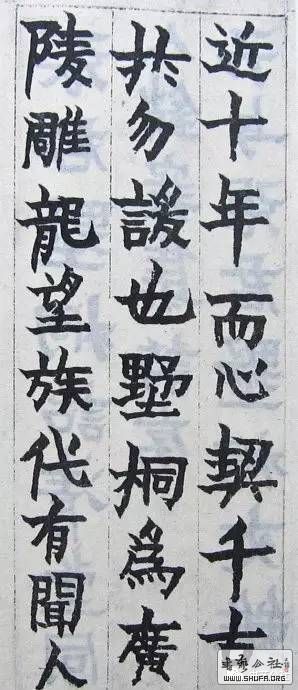 近十年而心契千古
扵勿諼也墅桐爲廣
陵雕龍望族代有聞人
書藝公社
WWW.SHUFA.ORG